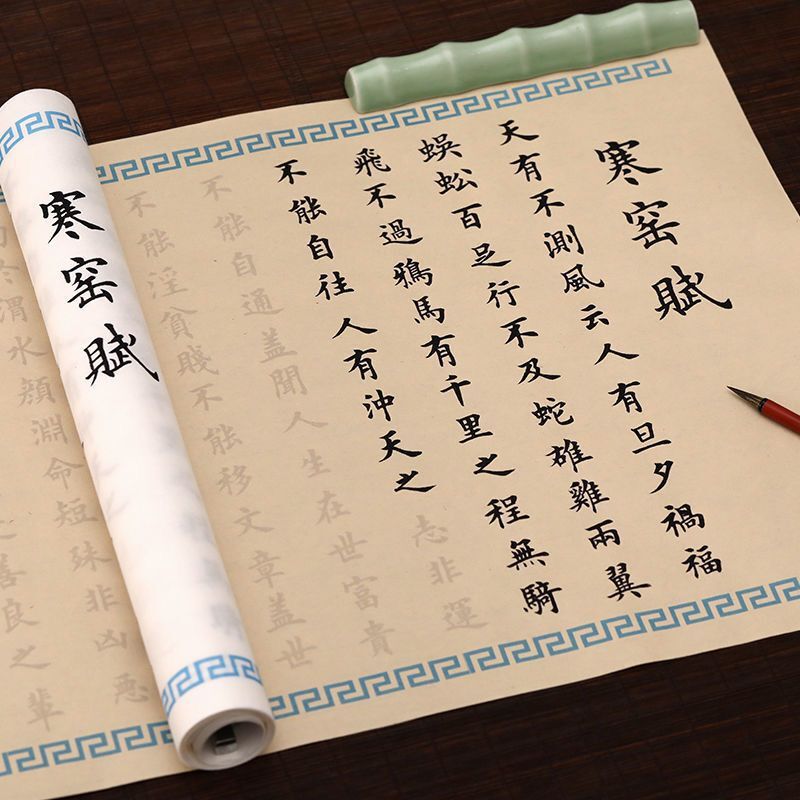 寒窑賦
天有不測風云人有旦夕禍福
蜈蚣百足行不及蛇雄雞兩翼
飛不過鴉馬有千里之程無騎
不能自往人有沖天之志非運
不能自通盖聞人生在世富貴
不能淫貧賤不能移文章盖世
寒窑賦
渭水顏淵命短殊非凶恶
善良之輩